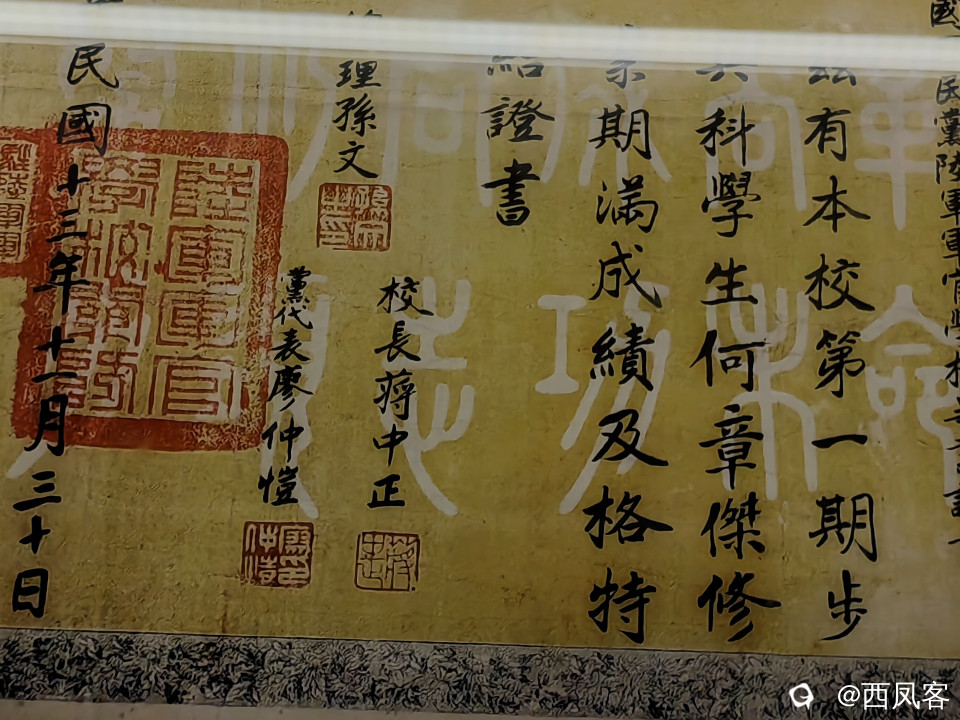 國
民黨陸軍軍官學校
茲有本校第一期步
兵科學生何章傑修
業期滿成績及格特
給證書
理孫文
校長蔣中正
黨代表廖仲愷
民國十三年十一月三十日
陸軍軍官
學校關防
革命
尚未
成功
同志
@西凤客